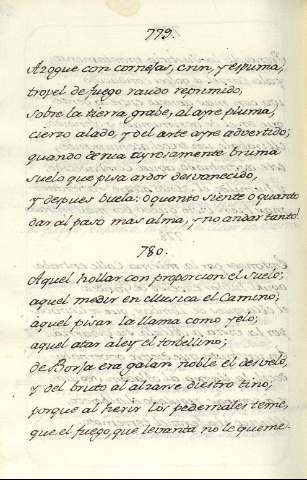 779.
Azogue con corvejas, crin, y espuma,
tropel de fuego raudo reprimido,
sobre la tierra grabe, al ayre pluma,
cierzo alado, y del arte ayre advertido;
quando denua ayrosamente bruma
suelo que pisa ardor desvanecido,
y depues buela: o quanto siente o quanto
dar al paso mas alma, y no andar tanto!
780.
Aquel hollar con proporcion el suelo;
aquel medir en ellusica el Camino;
aquel pisar la llama como yelo;
aquel atar aley el torbellino;
de Borja era galan noble el desvelo,
y del bruto al alzarre diestro tino;
porque al herir los pedernales teme,
que el fuego, que levanta no le queme.